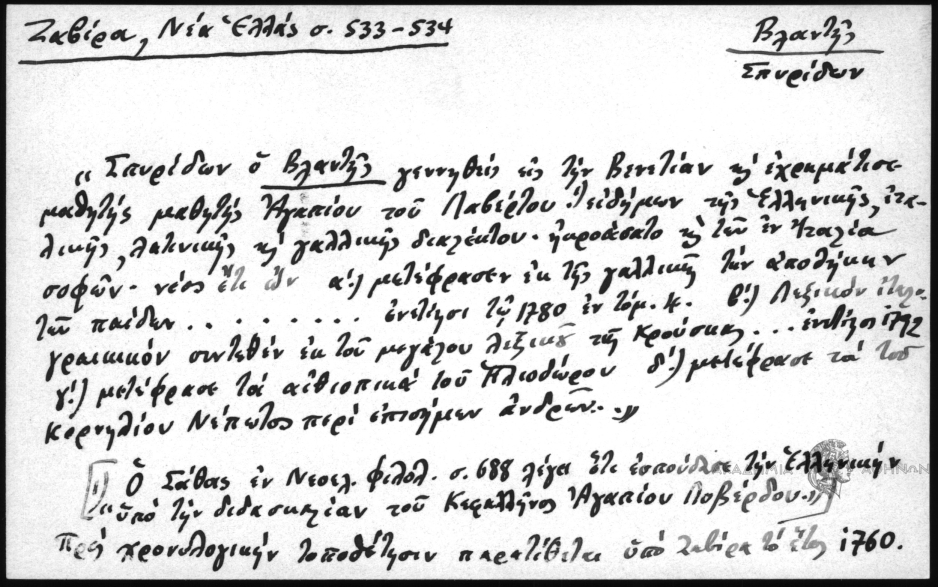 Ζαβίρα, Νέα Ἑλλάς σ. 533-534
Βλαντῆς
Σπυρίδων
"Σπυρίδων ὁ Βλαντῆς γεννηθείς εἰς τήν Βενετίαν κ ἐχρημάτισε
μαθητής μαθητής Ἀγαπίου τοῦ Λαβέρτου· εἰδήμων τῆς Ἑλληνικῆς, ἰτα-
λικῆς, λατινικῆς κ γαλλικῆς διαλέκτου· ἠκροάσατο κ τῶν ἐν Ἰταλία
σοφῶν· νέος ἔτι ὤν α΄) μετέφρασεν ἐκ τῆς γαλλικῆς τήν ἀποθήκην
τῶν παίδων . . . . . . . . . ἐνετίησι τῷ 1780 ἐν τόμ. 4. β΄) Λεξικόν ἰταλο-
γραικικόν συντεθέν ἐκ τοῦ μεγάλου λεξικοῦ τῆς Κρούσκας... ἐνετίησι 1792
γ΄) μετέφρασε τά αἰθιοπικά τοῦ Ἡλιοδώρου δ΄) μετέφρασε τά τοῦ
Κορνηλίου Νέπωτος περί ἐπισήμων ἀνδρῶν..."
1) Ὁ Σάθας ἐν Νεοελ. φιλολ. σ. 688 λέγει ὅτι ἐσπούδασε τήν Ἑλληνικήν
"ὑπό τήν διδασκαλίαν τοῦ Κεφαλλῆνος Ἀγαπίου Λοβέρδου."
Πρός χρονολογικήν τοποθέτησιν παρατίθεται ὑπό Ζαβίρα τό ἔτος 1760.
ΑΚΑΔΗΜΙΑ ΑΘΗΝΩΝ